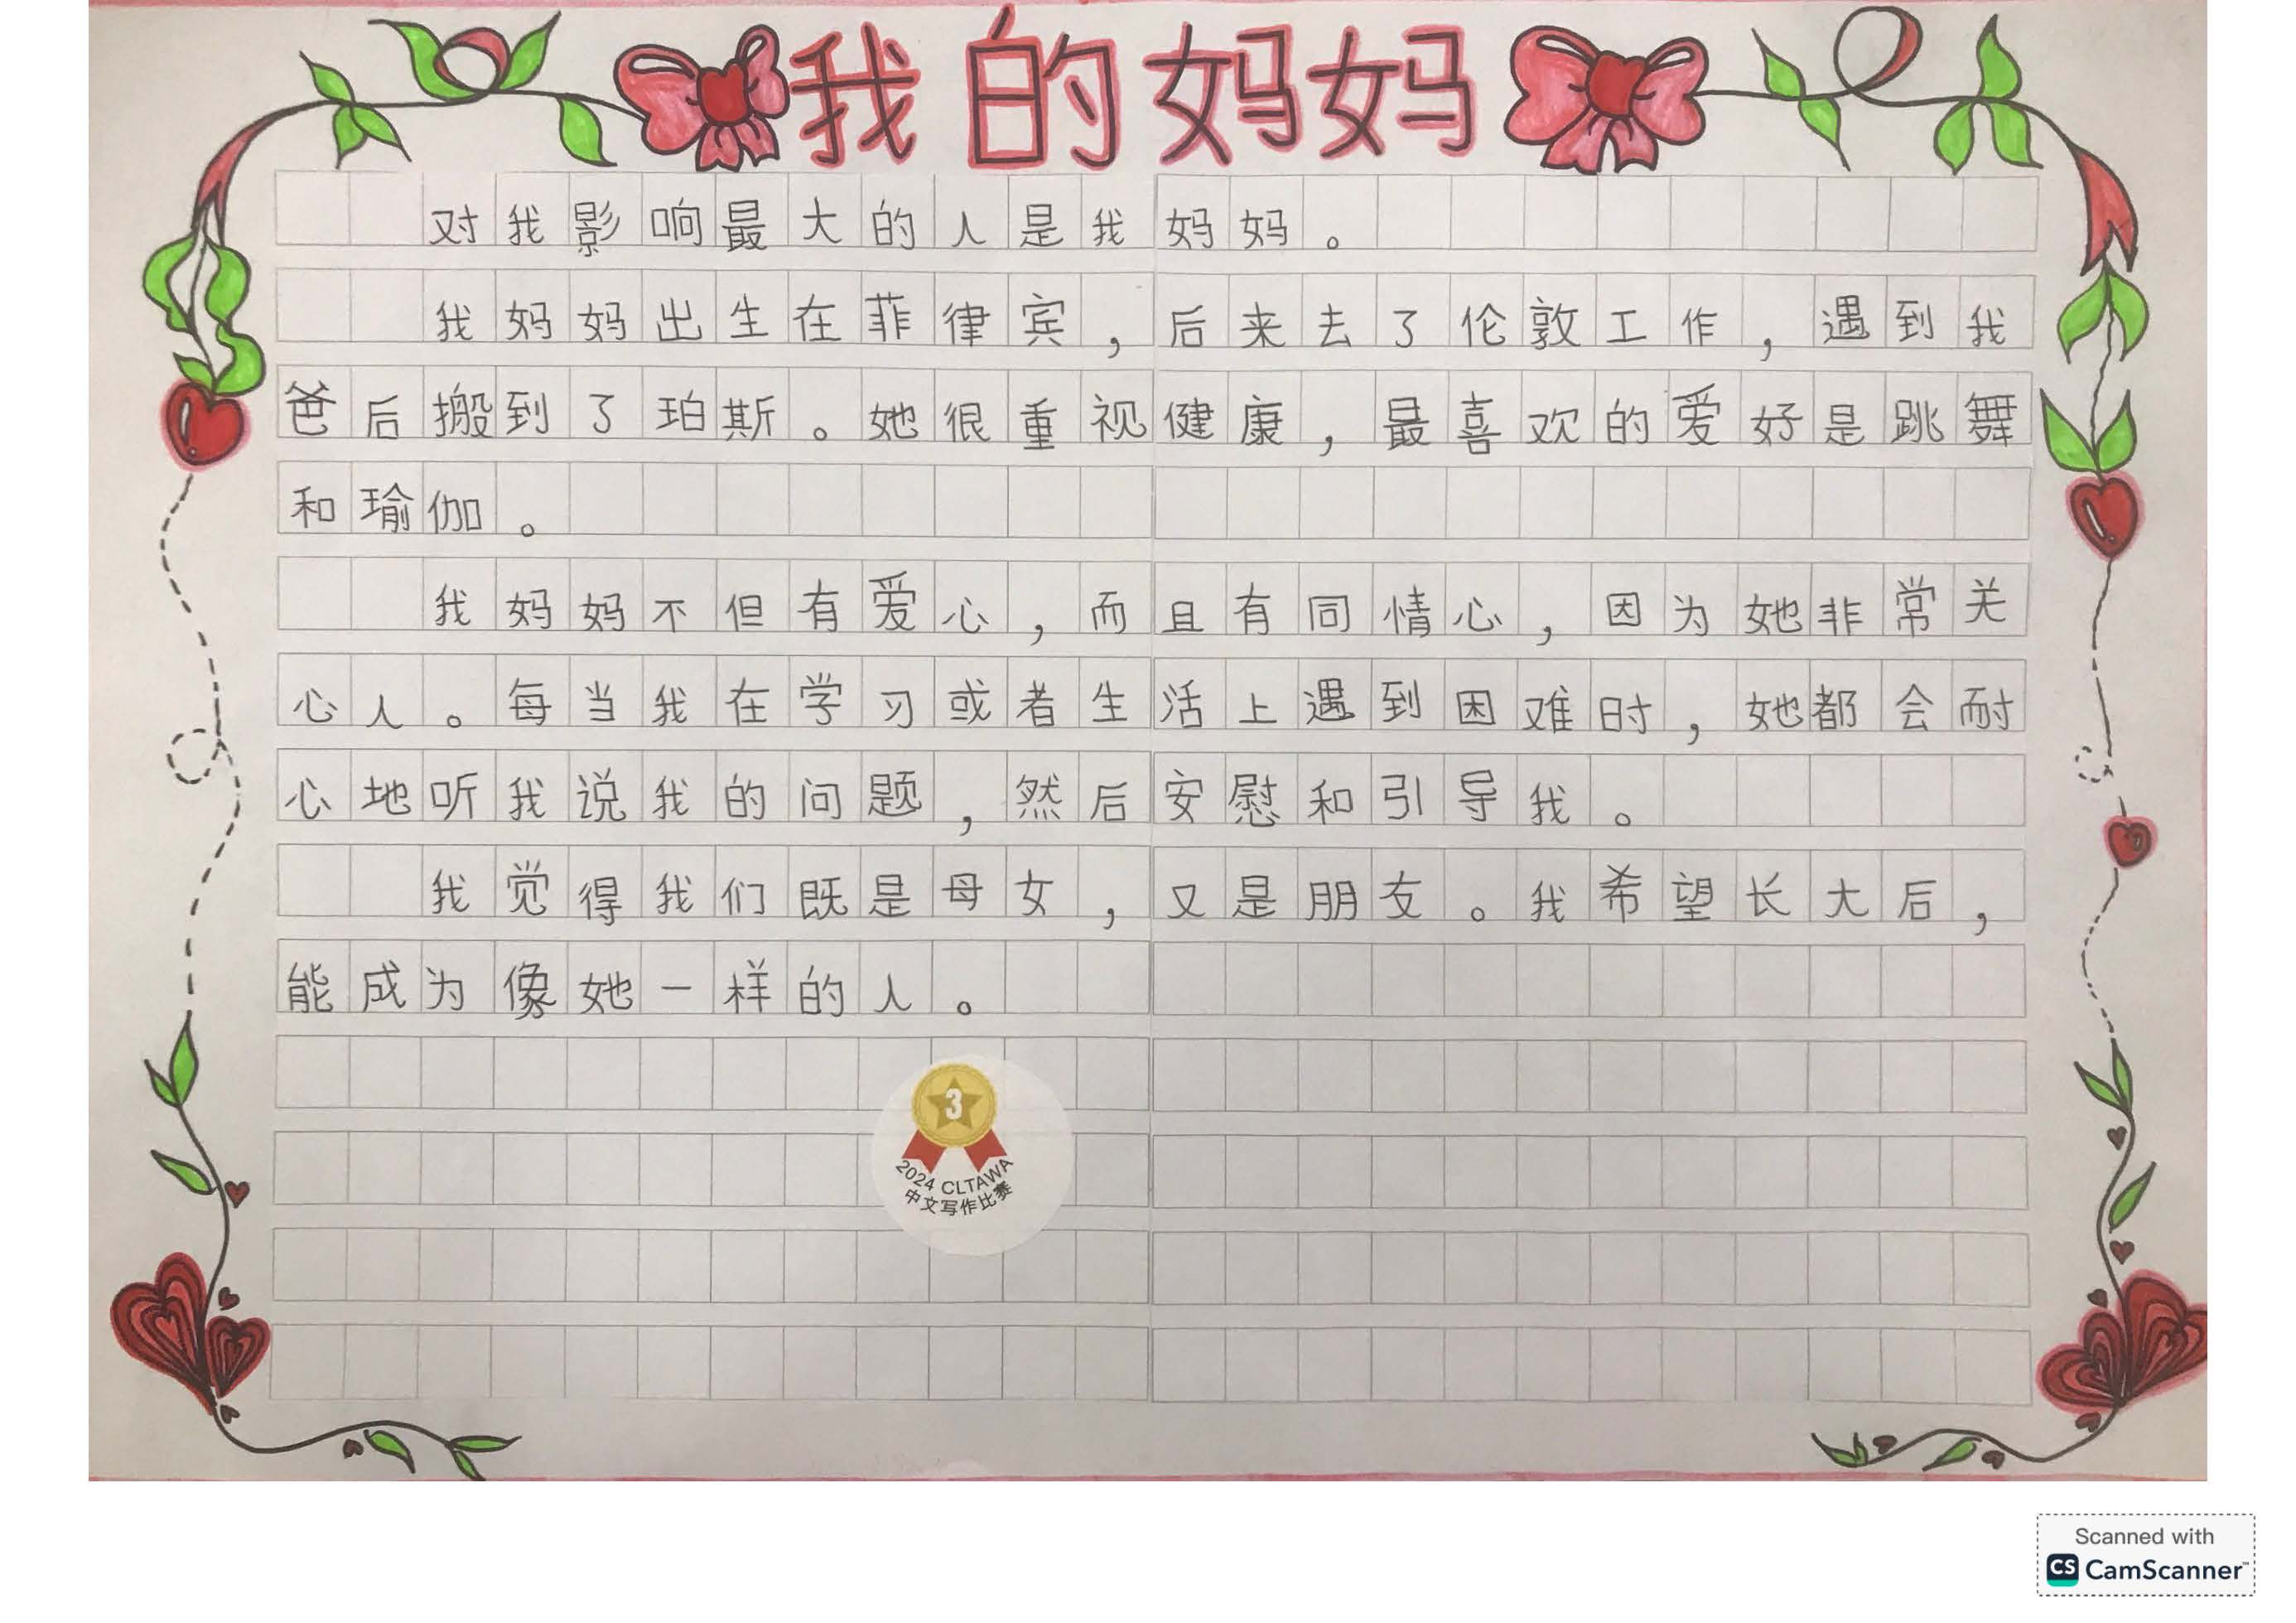 我的妈妈
对我影响最大的人是我妈妈。
我妈妈出生在菲律宾，后来去了伦敦工作，遇到我
爸后搬到了珀斯。她很重视健康，最喜欢的爱好是跳舞
和瑜伽。
我妈妈不但有爱心，而且有同情心，因为她非常关
心人。每当我在学习或者生活上遇到困难时，她都会耐
心地听我说我的问题，然后安慰和引导我。
我觉得我们既是母女，又是朋友。我希望长大后，
能成为像她一样的人。
3
2024 CLTAWA
中文写作比赛
Scanned with
CS CamScanner™